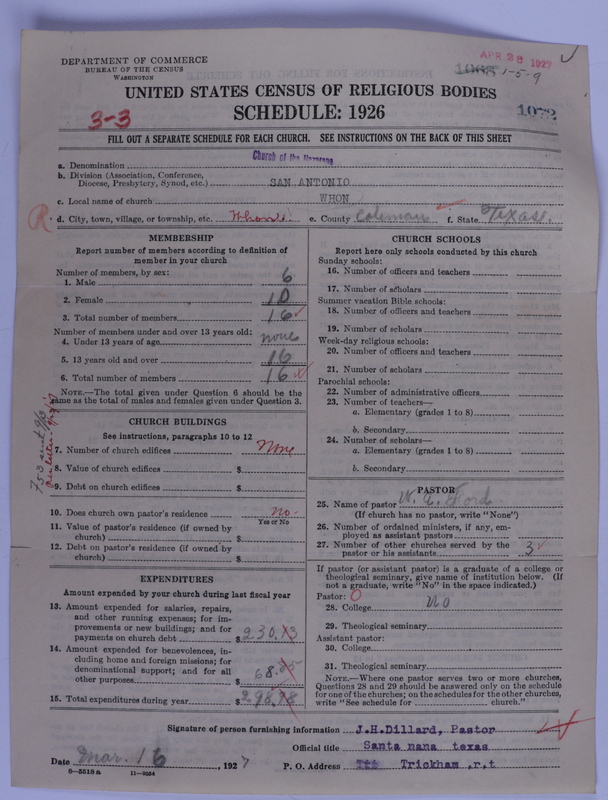 DEPARTMENT OF COMMERCE
BUREAU OF THE CENSUS
WASHINGTON
APR 28 1927
1-5-9
UNITED STATES CENSUS OF RELIGIOUS BODIES
SCHEDULE: 1926
3-3
1072
FILL OUT A SEPARATE SCHEDULE FOR EACH CHURCH. SEE INSTRUCTIONS ON THE BACK OF THIS SHEET
a. Denomination Church of the Nazarene
b. Division (Association, Conference,
Diocese, Presbytery, Synod, etc.) SAN ANTONIO
c. Local name of church WHON
R d. City, town, village, or township, etc. Whon. e. County Coleman f. State Texas.
MEMBERSHIP
Report number of members according to definition of
member in your church
Number of members, by sex:
1. Male 6
2. Female 10
3. Total number of members 16
Number of members under and over 13 years old:
4. Under 13 years of age none
5. 13 years old and over 16
6. Total number of members 16
NOTE.—The total given under Question 6 should be the
same as the total of males and females given under Question 3.
CHURCH BUILDINGS
See instructions, paragraphs 10 to 12
7. Number of church edifices None
8. Value of church edifices $
9. Debt on church edifices $
10. Does church own pastor's residence? no.
Yes or No
11. Value of pastor's residence (if owned by
church) $
12. Debt on pastor's residence (if owned by
church) $
EXPENDITURES
Amount expended by your church during last fiscal year
13. Amount expended for salaries, repairs,
and other running expenses; for im-
provements or new buildings; and for
payments on church debt $ 230.13
14. Amount expended for benevolences, in-
cluding home and foreign missions; for
denominational support; and for all
other purposes $ 68.85
15. Total expenditures during year $ 298.98
CHURCH SCHOOLS
Report here only schools conducted by this church
Sunday schools:
16. Number of officers and teachers
17. Number of scholars
Summer vacation Bible schools:
18. Number of officers and teachers
19. Number of scholars
Week-day religious schools:
20. Number of officers and teachers
21. Number of scholars
Parochial schools:
22. Number of administrative officers
23. Number of teachers—
a. Elementary (grades 1 to 8)
b. Secondary
24. Number of scholars—
a. Elementary (grades 1 to 8)
b. Secondary
PASTOR
25. Name of pastor W. E. Ford
(If church has no pastor, write "None")
26. Number of ordained ministers, if any, em-
ployed as assistant pastors
27. Number of other churches served by the
pastor or his assistants 3
If pastor (or assistant pastor) is a graduate of a college or
theological seminary, give name of institution below. (If
not a graduate, write "No" in the space indicated.)
Pastor: 0
28. College No
29. Theological seminary
Assistant pastor:
30. College
31. Theological seminary
NOTE.—Where one pastor serves two or more churches,
Questions 28 and 29 should be answered only on the schedule
for one of the churches; on the schedules for the other churches,
write "See schedule for church."
Signature of person furnishing information J.H.Dillard, Pastor
Official title Santa nana texas
Date Mar. 16, 1927 P. O. Address Trickham ,r,t
8—5518 a 11—9034